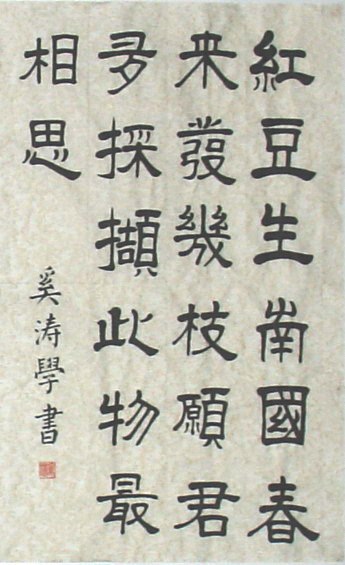 紅豆生南國春
来發幾枝願君
多採擷此物最
相思
奚涛學書